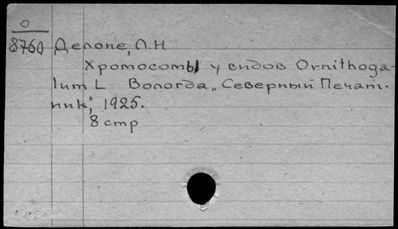 0
8760 Делоне, Л.Н
Хромосомы у видов Ornithoga-
lum L Вологда „Северный Печат-
ник", 1925.
8 стр